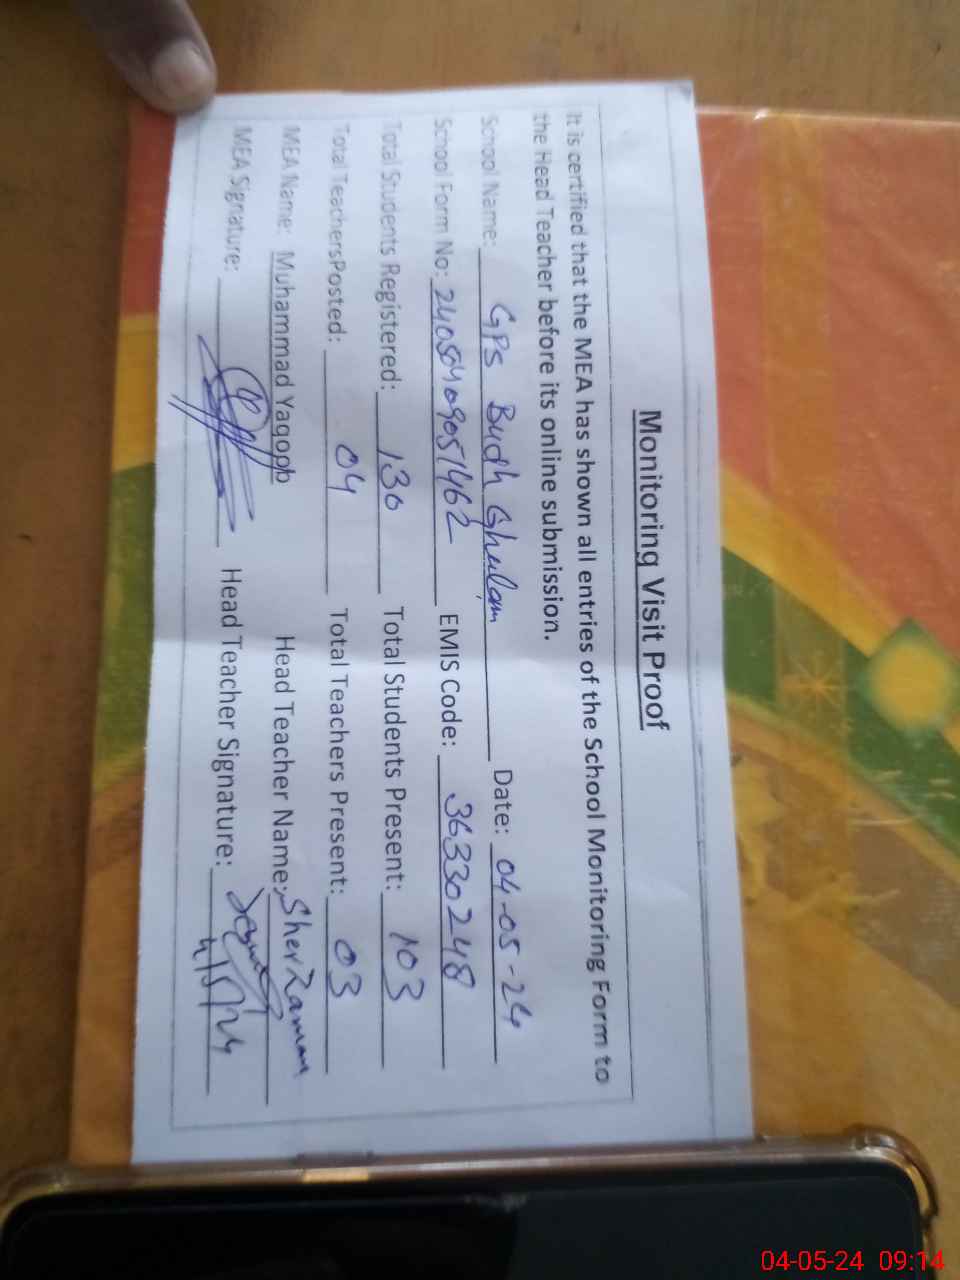 Monitoring Visit Proof
It is certified that the MEA has shown all entries of the School Monitoring Form to
the Head Teacher before its online submission.
School Name: GPS Budh Ghulam Date: 04-05-24
School Form No: 24050409051462 EMIS Code: 36330248
Total Students Registered: 130 Total Students Present: 103
Total TeachersPosted: 04 Total Teachers Present: 03
MEA Name: Muhammad Yaqoob Head Teacher Name: Sher Zaman
MEA Signature: Head Teacher Signature:
4/5/24
04-05-24 09:14